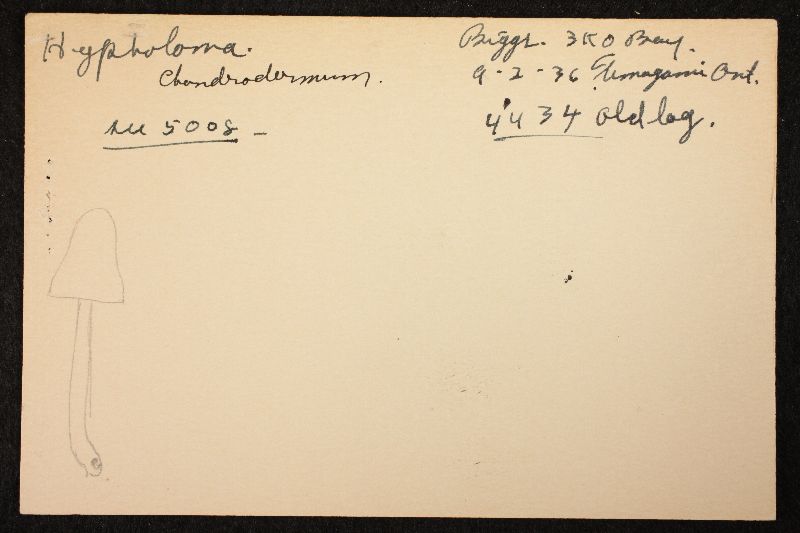 Hypholoma.
Chondrodermum.
5008 -
Biggs. 3KO Bay.
9-2-36 Temagami Ont.
4434 old log.